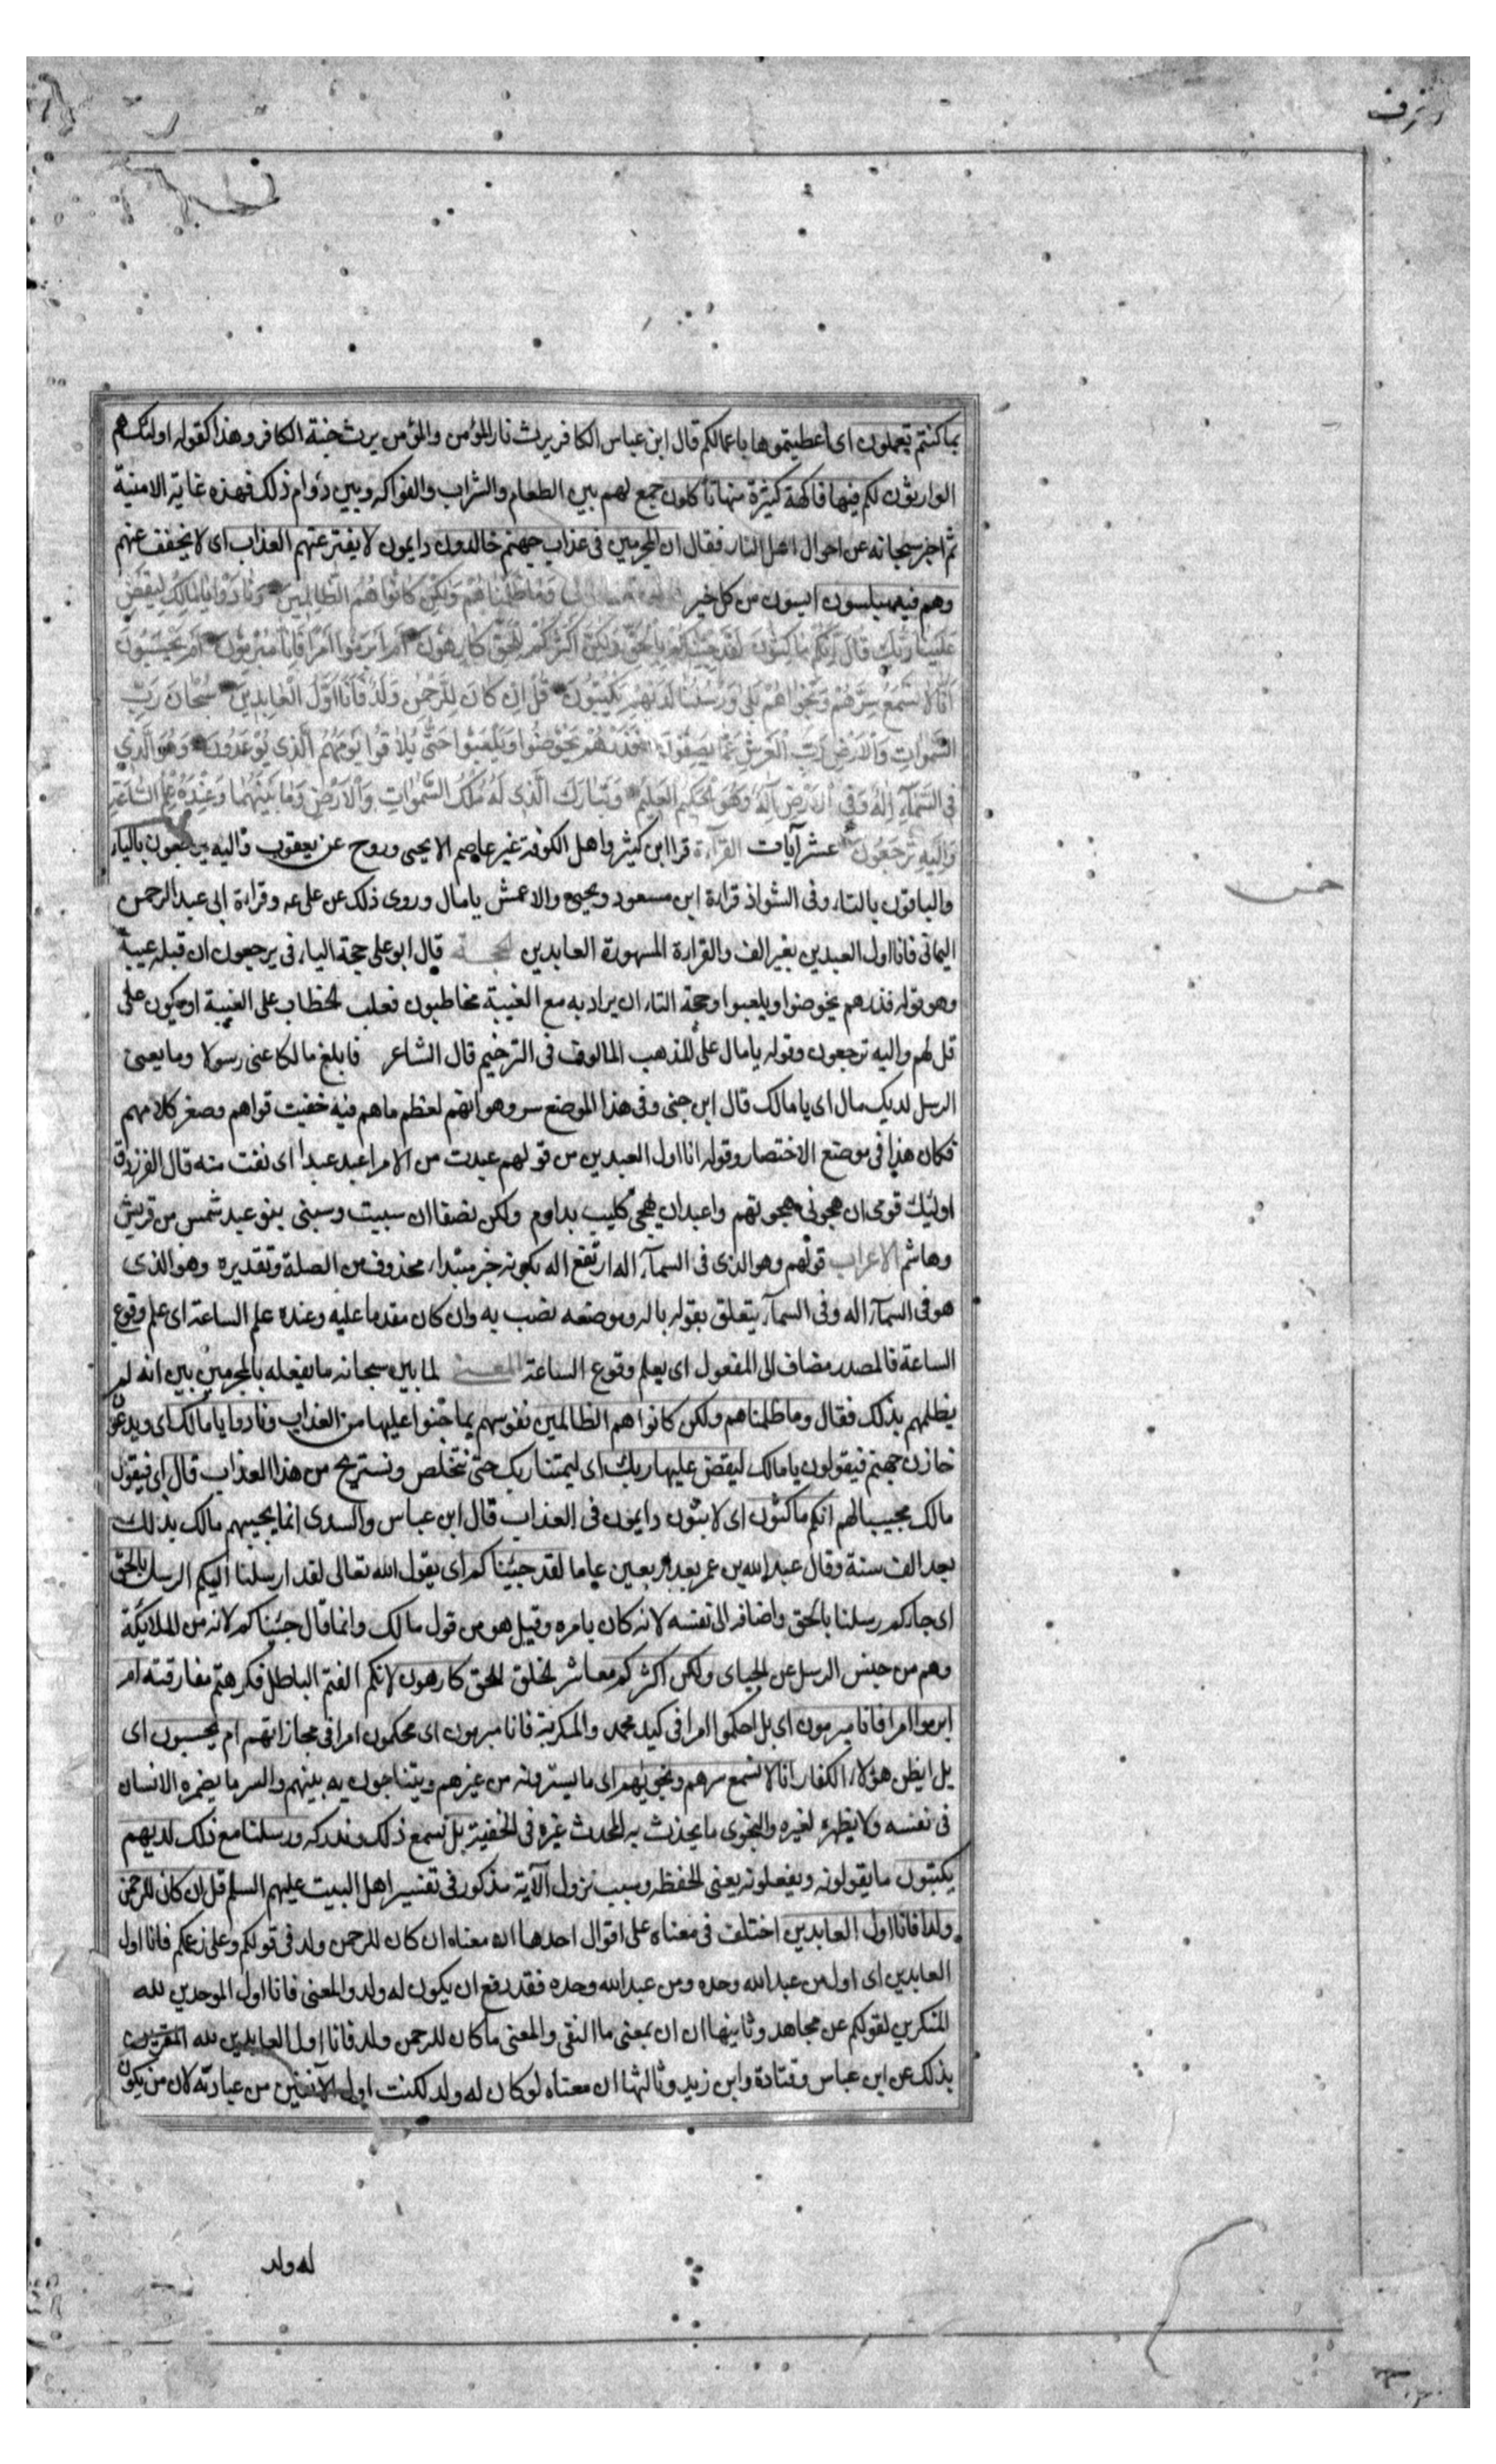 زخرف
بما كنتم تعملون اى اعطيتموها باعمالكم قال ابن عباس الكافر يرث نار المؤمن والمؤمن يرث جنة الكافر وهذا كقوله اولئك هم
الوارثون لكم فيها فاكهة كثيرة منها تاكلون جمع لهم بين الطعام والشراب والفواكه وبين دوام ذلك فهذه غاية الامنية
ثم اخبر سبحانه عن احوال اهل النار فقال ان المجرمين فى عذاب جهنم خالدون دايمون لا يفتر عنهم العذاب اى لا يخفف عنهم
وهم فيه مبلسون ايسون من كل خير وَمَا ظَلَمْنَاهُمْ وَلٰكِنْ كَانُوا هُمُ الظَّالِمِينَ وَنَادَوْا يَا مَالِكُ لِيَقْضِ
عَلَيْنَا رَبُّكَ قَالَ اِنَّكُمْ مَاكِثُونَ لَقَدْ جِئْنَاكُمْ بِالْحَقِّ وَلٰكِنَّ اَكْثَرَكُمْ لِلْحَقِّ كَارِهُونَ اَمْ اَبْرَمُوا اَمْرًا فَاِنَّا مُبْرِمُونَ اَمْ يَحْسَبُونَ
اَنَّا لَا نَسْمَعُ سِرَّهُمْ وَنَجْوَاهُمْ بَلٰى وَرُسُلُنَا لَدَيْهِمْ يَكْتُبُونَ قُلْ اِنْ كَانَ لِلرَّحْمٰنِ وَلَدٌ فَاَنَا اَوَّلُ الْعَابِدِينَ سُبْحَانَ رَبِّ
السَّمٰوَاتِ وَالْاَرْضِ رَبِّ الْعَرْشِ عَمَّا يَصِفُونَ فَذَرْهُمْ يَخُوضُوا وَيَلْعَبُوا حَتّٰى يُلَاقُوا يَوْمَهُمُ الَّذِى يُوعَدُونَ وَهُوَ الَّذِى
فِى السَّمَآءِ اِلٰهٌ وَفِى الْاَرْضِ اِلٰهٌ وَهُوَ الْحَكِيمُ الْعَلِيمُ وَتَبَارَكَ الَّذِى لَهُ مُلْكُ السَّمٰوَاتِ وَالْاَرْضِ وَمَا بَيْنَهُمَا وَعِنْدَهُ عِلْمُ السَّاعَةِ
وَاِلَيْهِ تُرْجَعُونَ عشر آيات القرآءة قرا ابن كثير واهل الكوفة غير عاصم الا يحيى وروح عن يعقوب واليه يرجعون بالياء
والباقون بالتاء وفى الشواذ قراءة ابن مسعود ويحيى والاعمش يا مال وروى ذلك عن على عه وقراءة ابى عبد الرحمن
اليمانى فانا اول العبدين بغير الف والقراءة المشهورة العابدين الحجة قال ابو على حجة الياء فى يرجعون ان قبله غيبة
وهو قوله فذرهم يخوضوا ويلعبوا وحجة التاء ان يراد به مع الغيبة مخاطبون فغلب الخطاب على الغيبة او يكون على
قل لهم واليه ترجعون وقوله يا مال على المذهب المالوف فى الترخيم قال الشاعر فابلغ مالكا عنى رسولا وما يعنى
الرسل لديك مال اى يا مالك قال ابن جنى وفى هذا الموضع سر وهو انهم لعظم ما هم فيه خفيت قواهم وصغر كلامهم
فكان هذا فى موضع الاختصار وقوله انا اول العبدين من قولهم عبدت من الامر اعبد عبدا اى انفت منه قال الفرزدق
اولئك قومى ان هجونى هجوتهم واعبد ان يهجى كليب بدارم ولكن نصفا ان سببت وسبنى بنو عبد شمس من قريش
وهاشم الاعراب قولهم وهو الذى فى السمآء اله ارتفع اله بكونه خبر مبتداء محذوف من الصلة وتقديره وهو الذى
هو فى السمآء اله وفى السمآء يتعلق بقوله باله وموضعه نصب به وان كان مقدما عليه وعنده علم الساعة اى علم وقوع
الساعة فالمصدر مضاف الى المفعول اى يعلم وقوع الساعة المعنى لما بين سبحانه ما يفعله بالمجرمين بين انه لم
يظلمهم بذلك فقال وما ظلمناهم ولكن كانوا هم الظالمين نفوسهم بما جنوا عليها من العذاب ونادوا يا مالك اى ويدعون
خازن جهنم فيقولون يا مالك ليقض عليها ربك اى ليمتنا ربك حتى نتخلص ونستريح من هذا العذاب قال اى فيقول
مالك مجيبا لهم انكم ماكثون اى لابثون دايمون فى العذاب قال ابن عباس والسدى انما يجيبهم مالك بذلك
بعد الف سنة وقال عبد الله بن عمر بعد اربعين عاما لقد جئناكم اى يقول الله تعالى لقد ارسلنا اليكم الرسل بالحق
اى جاءكم رسلنا بالحق واضافه الى نفسه لانه كان بامره وقيل هو من قول مالك وانما قال جئناكم لانه من الملائكة
وهم من جنس الرسل عن الجبائى ولكن اكثركم معاشر الخلق للحق كارهون لانكم الفتم الباطل فكرهتم مفارقته ام
ابرموا امرا فانا مبرمون اى بل احكموا امرا فى كيد محمد والمكر به فانا مبرمون اى محكمون امرا فى مجازاتهم ام يحسبون اى
بل ايظن هؤلاء الكفار انا لا نسمع سرهم ونجويهم اى ما يسترونه من غيرهم ويتناجون به بينهم والسر ما يضمره الانسان
فى نفسه ولا يظهره لغيره والنجوى ما يحدث به المحدث غيره فى الخفية بلى نسمع ذلك وندركه ورسلنا مع ذلك لديهم
يكتبون ما يقولونه ويفعلونه يعنى الحفظة وسبب نزول الآية مذكور فى تفسير اهل البيت عليهم السلم قل ان كان للرحمن
ولد فانا اول العابدين اختلف فى معناه على اقوال احدها ان معناه ان كان للرحمن ولد فى قولكم وعلى زعمكم فانا اول
العابدين اى اول من عبد الله وحده ومن عبد الله وحده فقد دفع ان يكون له ولد والمعنى فانا اول الموحدين لله
المنكرين لقولكم عن مجاهد وثانيها ان ان بمعنى ما النفى والمعنى ما كان للرحمن ولد فانا اول العابدين لله المقرين
بذلك عن ابن عباس وقتادة وابن زيد وثالثها ان معناه لو كان له ولد لكنت اول الآنفين من عبادته لان من يكون
له ولد